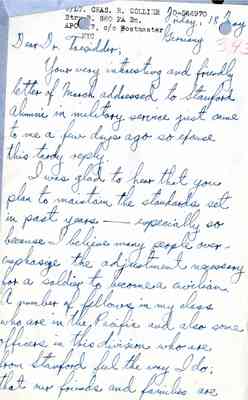 1/LT. CHAS. R. COLLIER O-544970
Btry B. 860 FA Bn. Friday, 18 May
APO 7, c/o Postmaster Germany
NYC
Dear Dr. Tresidder,
Your very interesting and friendly
letter of March addressed to Stanford
alumni in military service just came
to me a few days ago so excuse
this tardy reply.
I was glad to hear that you
plan to maintain the standards set
in past years — especially so
because I believe many people over-
emphasize the adjustment necessary
for a soldier to become a civilian.
A number of fellows in my class
who are in the Pacific and also some
officers in this division who are
from Stanford feel the way I do;
that our friends and families are